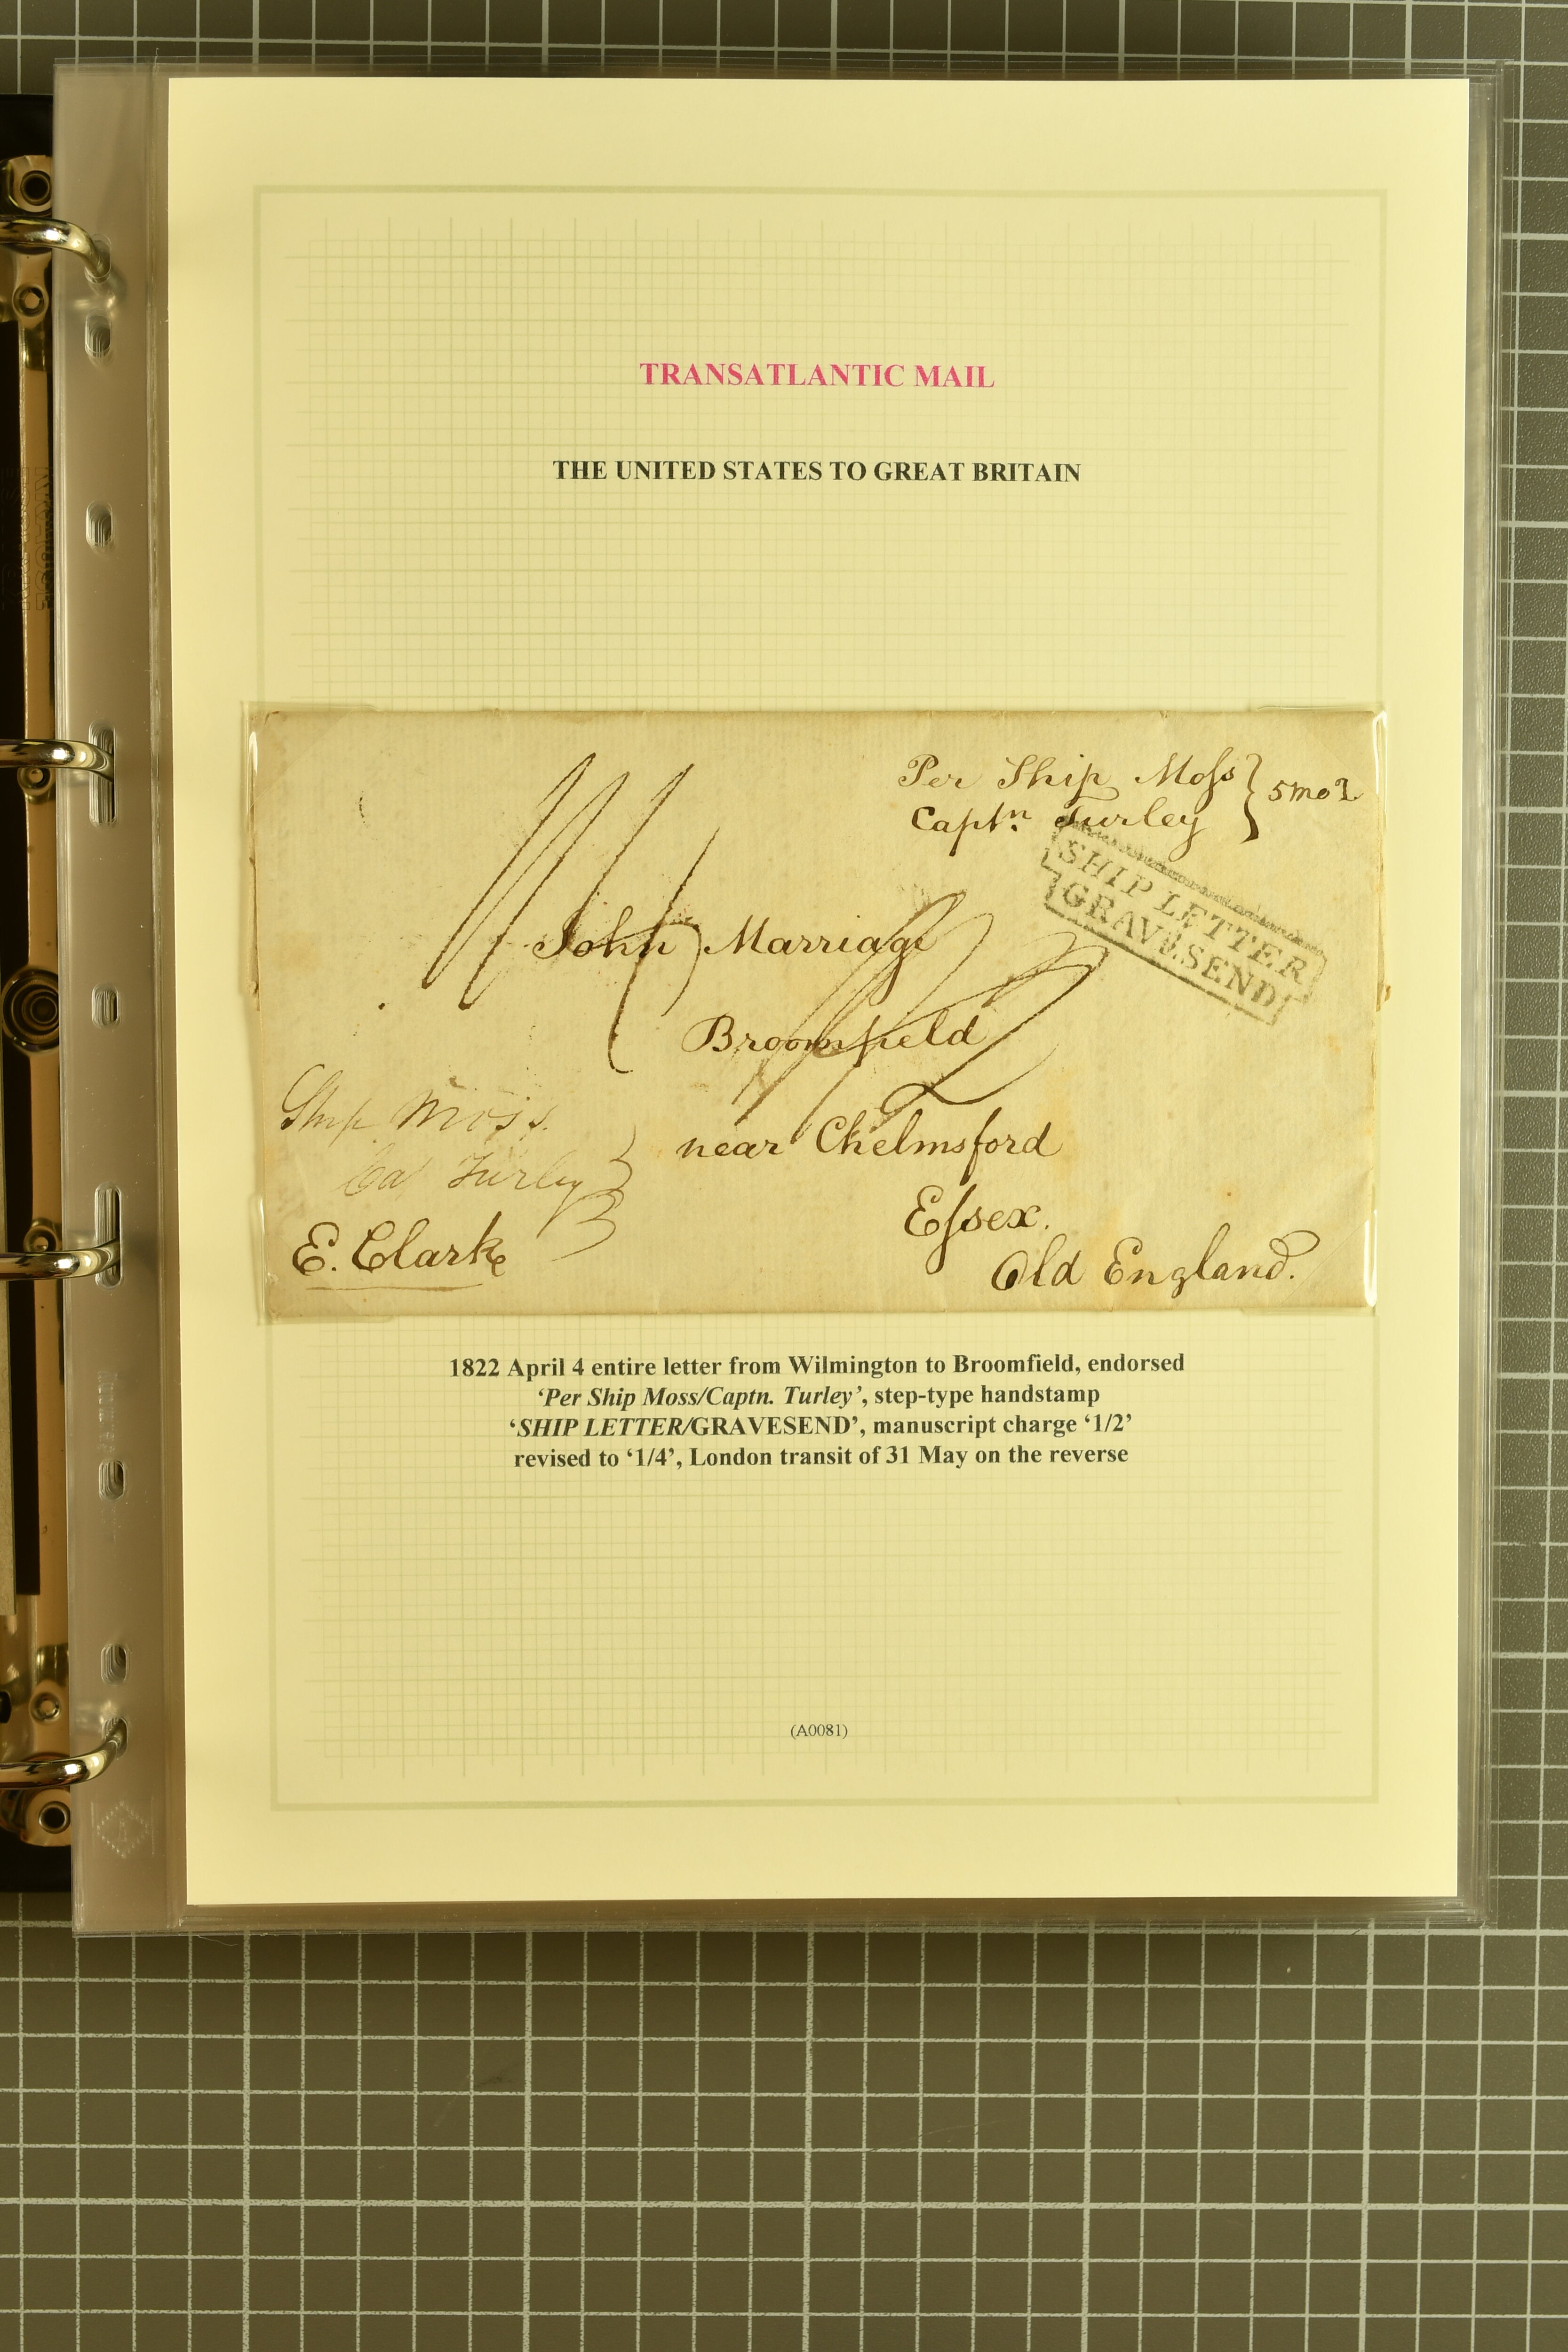 TRANSATLANTIC MAIL
THE UNITED STATES TO GREAT BRITAIN
Per Ship Moſs
Captn. Turley
5mo 1
SHIP LETTER
GRAVESEND
John Marriage
Broomfield
near Chelmsford
Eſsex.
Old England.
Ship Moss.
Ca Turley
E. Clarke
1822 April 4 entire letter from Wilmington to Broomfield, endorsed
‘Per Ship Moss/Captn. Turley’, step-type handstamp
‘SHIP LETTER/GRAVESEND’, manuscript charge ‘1/2’
revised to ‘1/4’, London transit of 31 May on the reverse
(A0081)